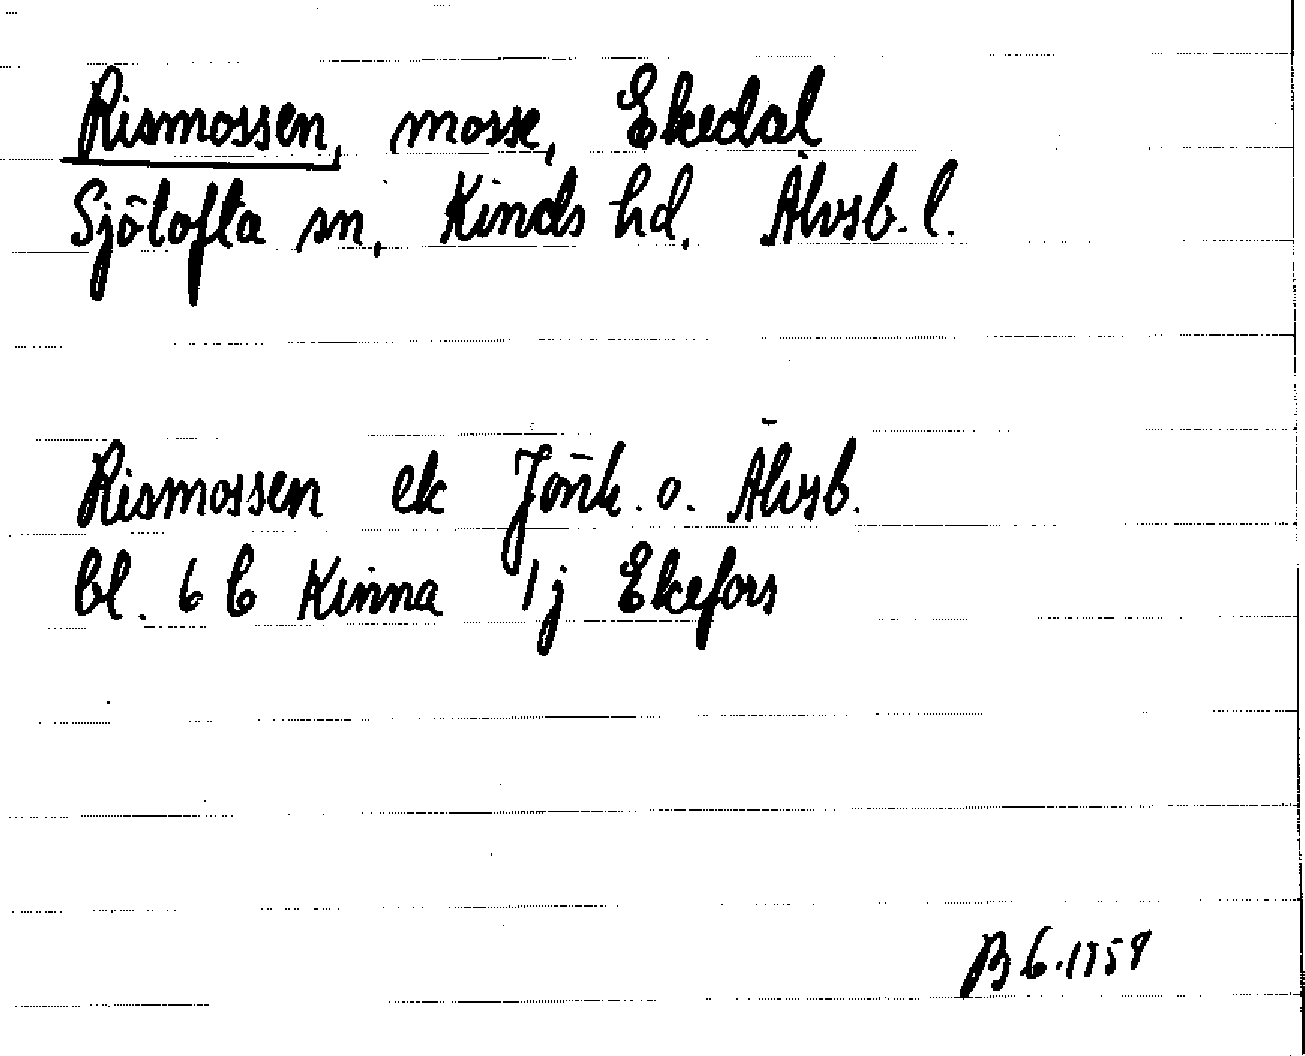 Rismossen, mosse, Ekedal
Sjötofta sn, Kinds hd, Älvsb. l.
Rismossen ek Jönk. o. Älvsb.
bl. 6 b Kinna 1 j Ekefors